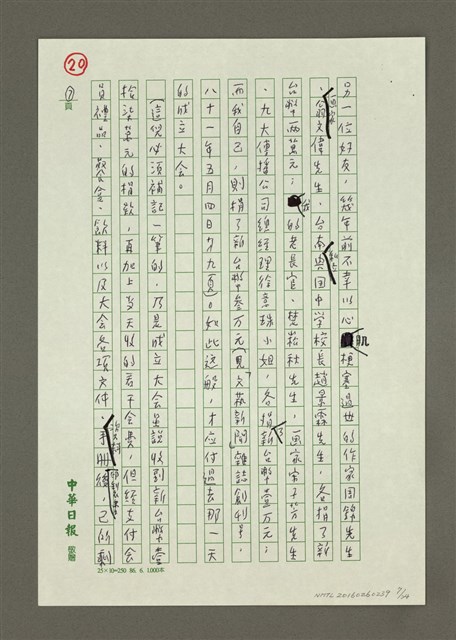 20
7頁
另一位好友,幾年前不幸以心肌梗塞過世的作家周錦先生
、翁文偉先生、台南興國中學校長趙景霖先生,各捐了新
台幣兩萬元;我的老長官、楚崧秋先生,畫家宋子芳先生
、九大傳播公司總經理徐景珠小姐,各捐新台幣壹萬元;
而我自己,則捐了新台幣叁萬元(見文荻新聞雜誌創刊号,
八十一年五月四日廿九頁)。如此這般,才应付過去那一天
的成立大会。
(這兒必須補記一筆的,乃是成立大会虽說收到新台幣壹
拾柒萬元的捐款,再加上当天收的若干会費,但經支付会
員禮品、餐会、飲料以及大会各項文件、手冊後,己所剩
中華日報
25×10=250 86. 6. 1000本
NMTL20160260239 7/14